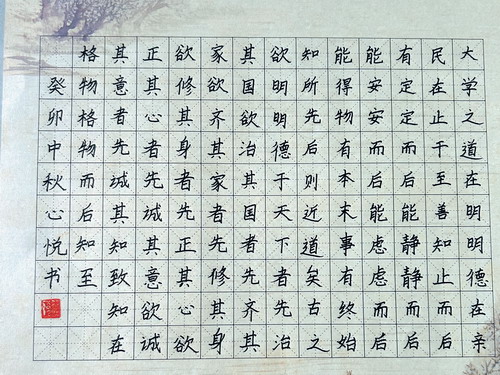 大学之道在明明德在亲
民在止于至善知止而后
有定定而后能静静而后
能安安而后能虑虑而后
能得物有本末事有终始
知所先后则近道矣古之
欲明明德于天下者先治
其国欲治其国者先齐其
家欲齐其家者先修其身
欲修其身者先正其心欲
正其心者先诚其意欲诚
其意者先诚其知致知在
格物格物而后知至
癸卯中秋心悦书